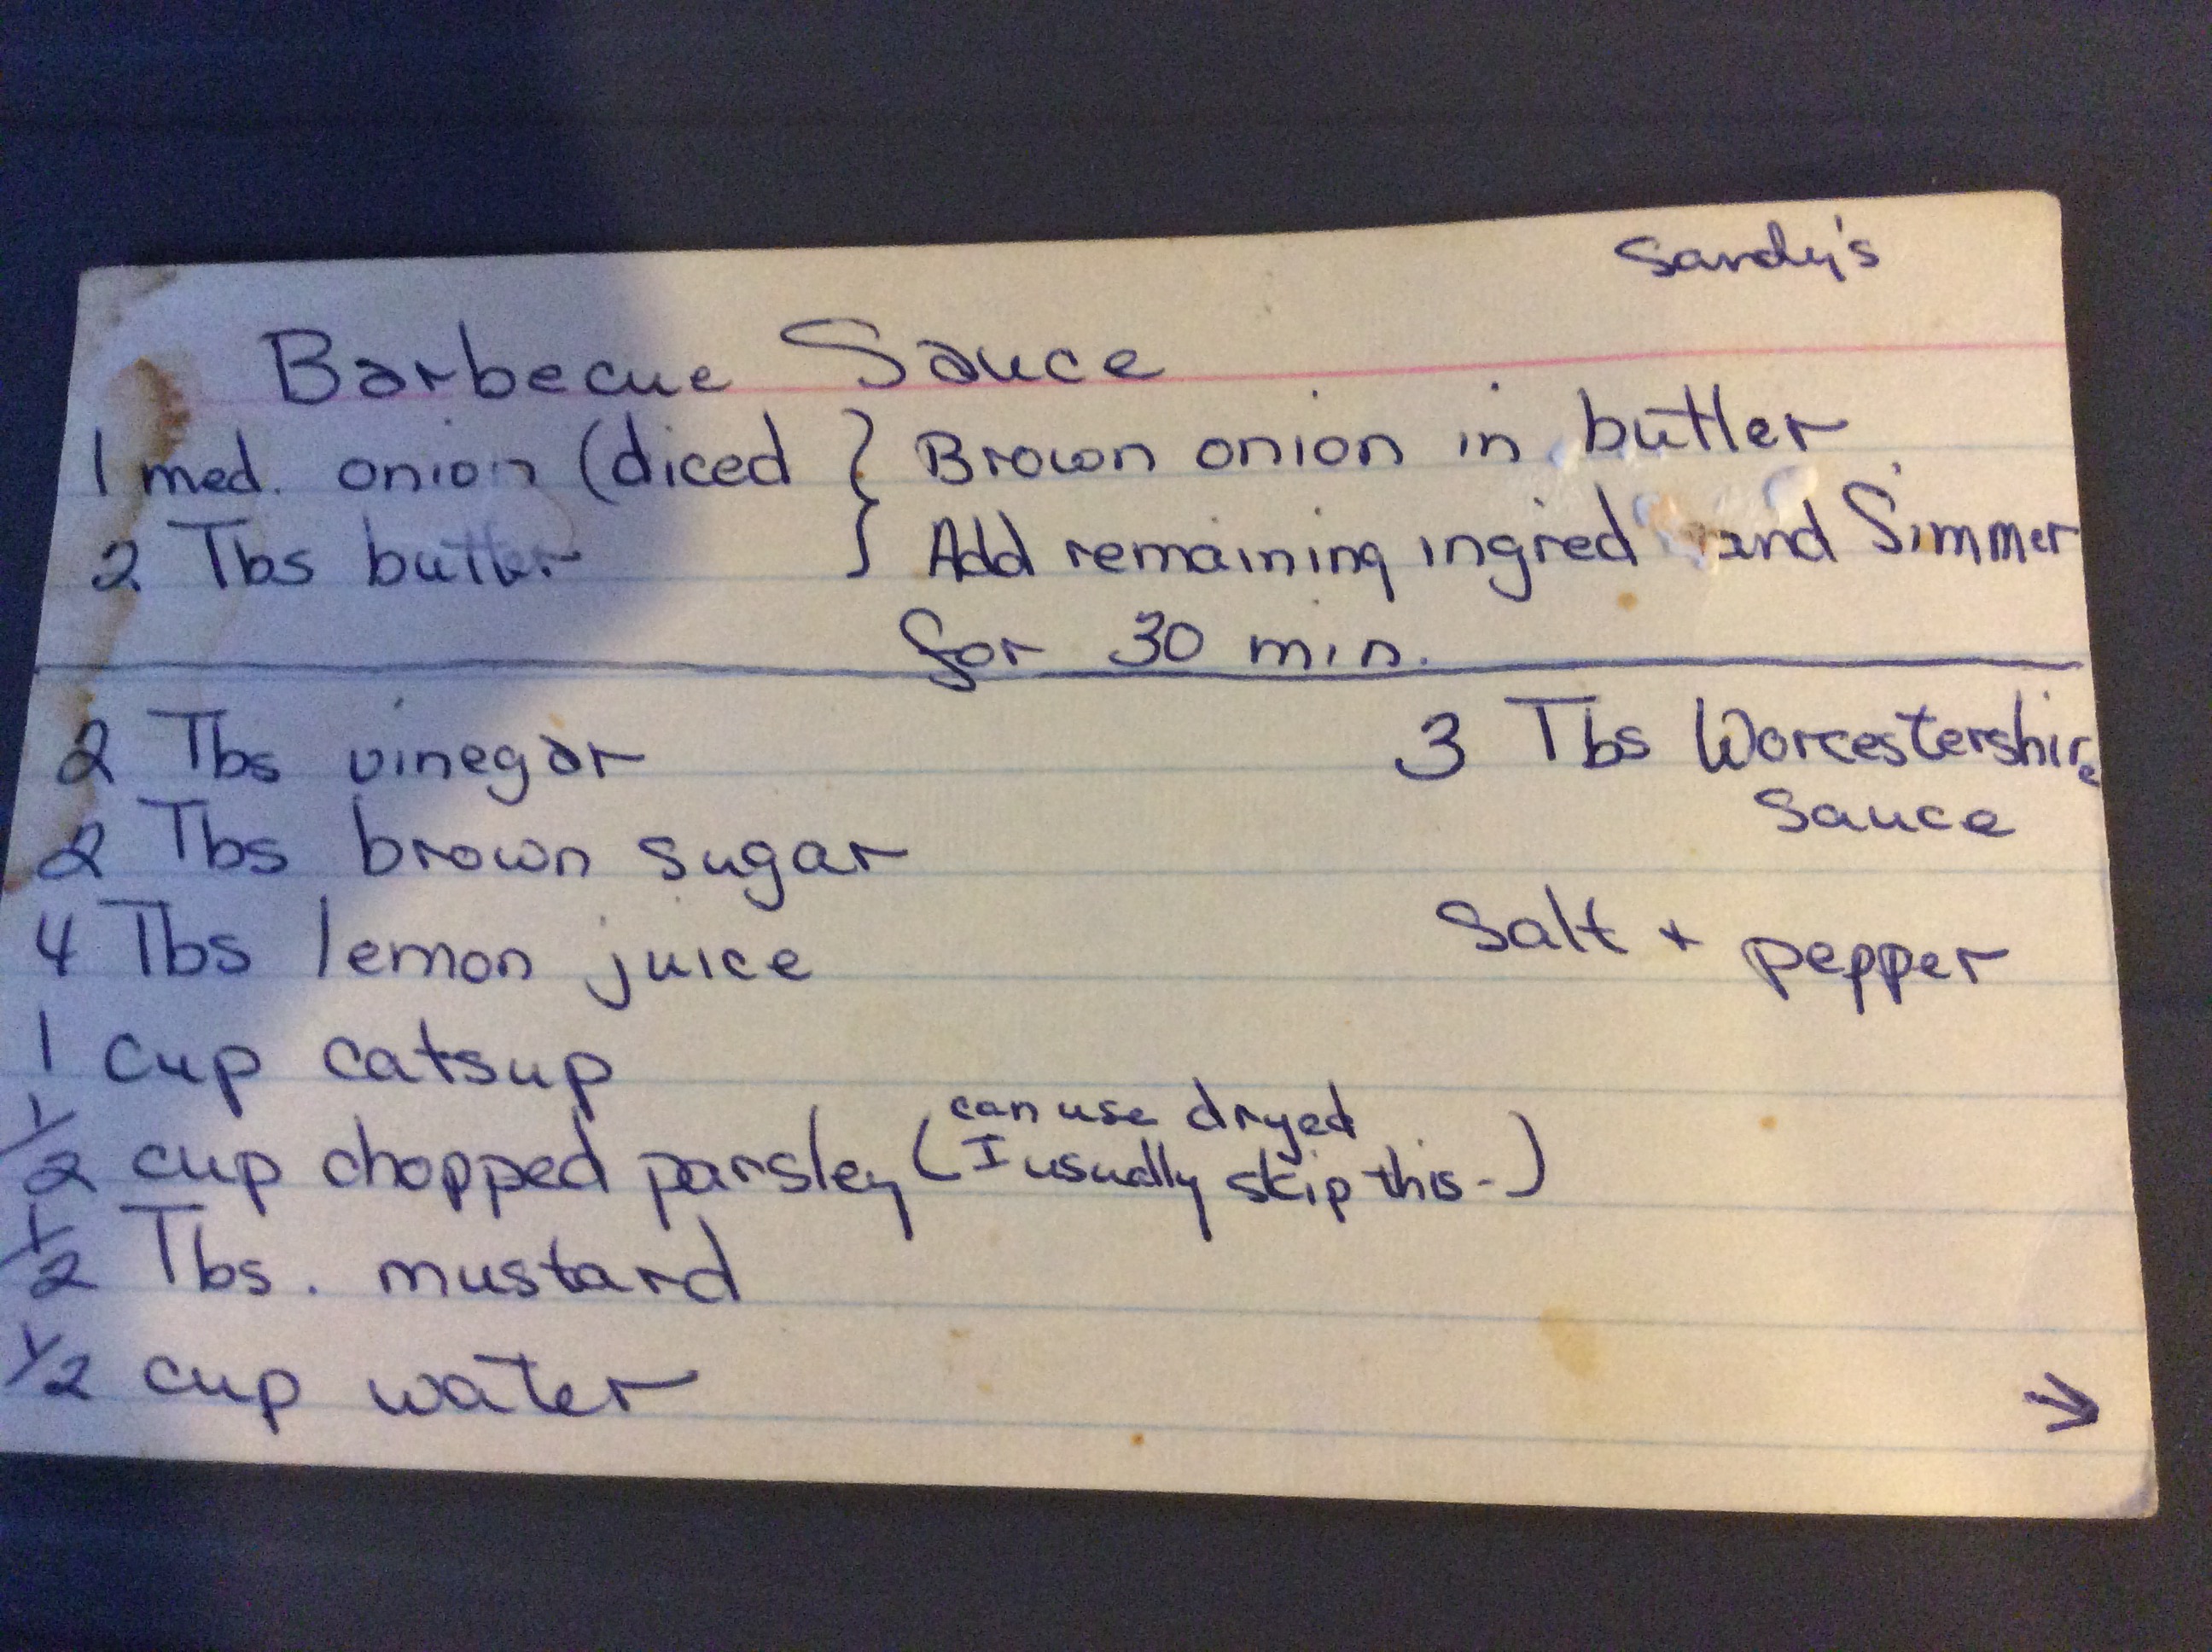 Sandy's
Barbecue Sauce
1 med. onion (diced } Brown onion in butter
2 Tbs butter } Add remaining ingred and Simmer
for 30 min.
2 Tbs vinegar 3 Tbs Worcestershire
Sauce
2 Tbs brown sugar
4 Tbs lemon juice Salt + pepper
1 cup catsup
1/2 cup chopped parsley (can use dryed
I usually skip this-)
1/2 Tbs. mustard
1/2 cup water →